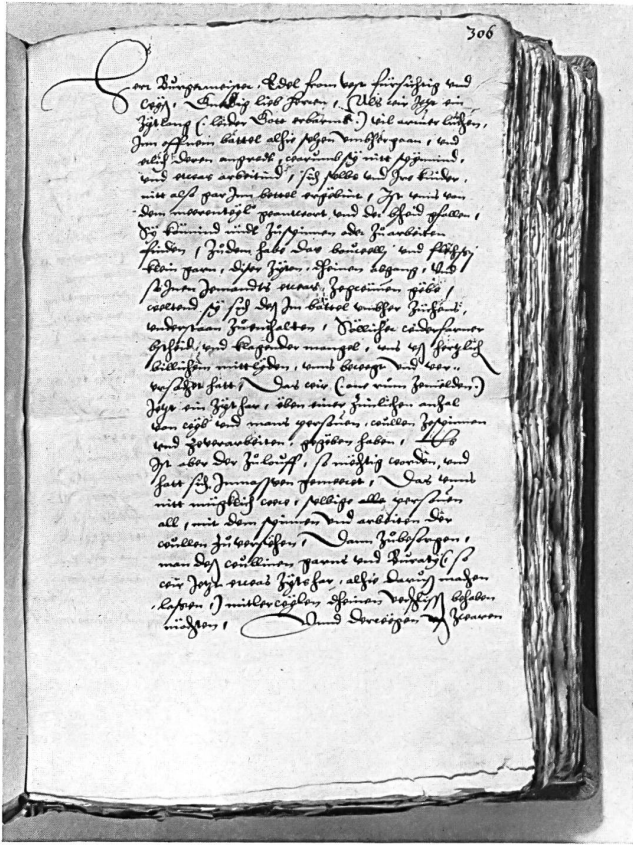 306
Herr Burgermeister, Edel from vest fürsichtig und
wyß, Gnedig lieb Herren, Als wir jetz ein
Zytlang (: leider Gott erbarms :) vil armer lüthen,
Im offnem bättel alhie sehen umbhergaan, und
etlich deren angredt, warumb sy nitt spünnind,
und etwas arbeitind, sich selbs und Ire kinder,
nitt also gar Im bettel erzühind, Ist unns von
dem meerentheyl geantwort und der bscheid gfallen,
Sy könnind nüdt Zuspinnen oder Zuarbeiten
finden, Zudem habe das bouwelly und flächsy
klein garn, diser Zyten dheinen abgang, Wo
so Inen Jemandts etwas Zegwünnen gäbe,
weltend sy sich deß Im bättel umbher Zühens,
understaan Zuenthalten, Söllicher widerfarner
bscheid, und klagender mangel, uns uß hertzlich
billichem mittlyden, unns bewegt und ver-
ursachet hatt, Das wir (: one rum Zemelden :)
Jetz ein Zyt har, eben einer Zimlichen anzal
von wyb und mans personen, wullen Zespinnen
und Zeverarbeiten, gegeben haben, Es
Ist aber der Zulouff, so mächtig worden, und
hatt sich Innmassen gemeeret, Das unns
nitt müglich were, selbige alle personen
all, mit dem spinnen und arbeiten der
wullen Zuversehen, Dann Zubesorgen,
man deß wullinen garns und Buratz (: so
wir Jetz etwas Zyts har, alhie daruß machen
lassen, :) mitlerwylen dheinen verschlyß behaben
möchten, Unnd derwegen uß Zwaren